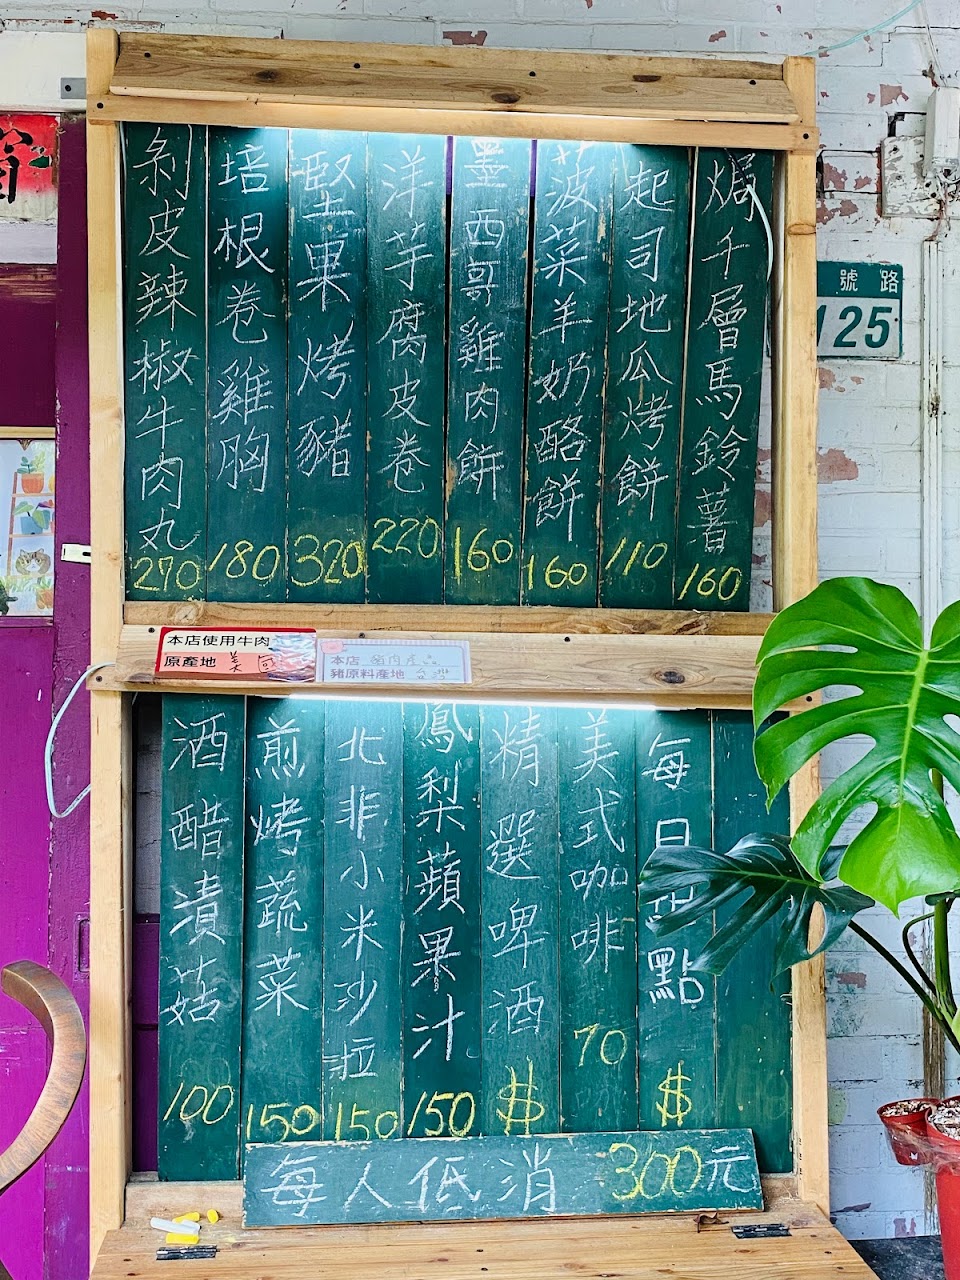 焗千層馬鈴薯 160
起司地瓜烤餅 110
菠菜羊奶酪餅 160
墨西哥雞肉餅 160
洋芋腐皮卷 220
堅果烤豬 320
培根卷雞胸 180
剝皮辣椒牛肉丸 270
號路
125
本店使用牛肉
原產地 美國
本店 豬肉產品
豬原料產地 台灣
每日甜點 $
美式咖啡 70
精選啤酒 $
鳳梨蘋果汁 150
北非小米沙拉 150
煎烤蔬菜 150
酒醋漬菇 100
每人低消 300元